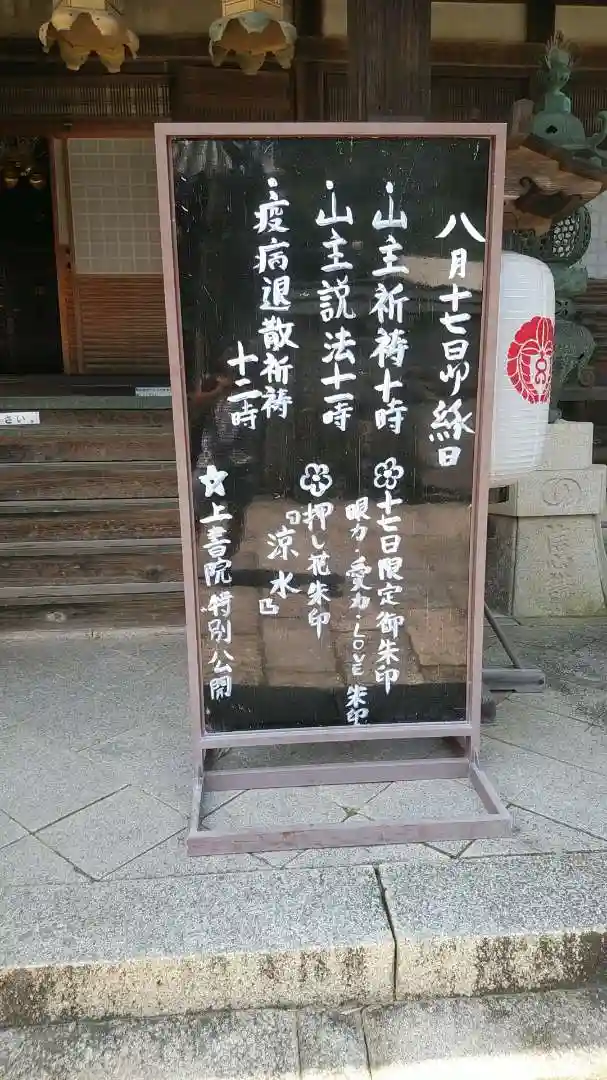 八月十七日 縁日
・山主祈祷十時
・山主説法十一時
・疫病退散祈祷
十二時
十七日限定御朱印
眼力・愛力・LOVE朱印
押し花朱印
『涼水』
☆上書院特別公開
さい